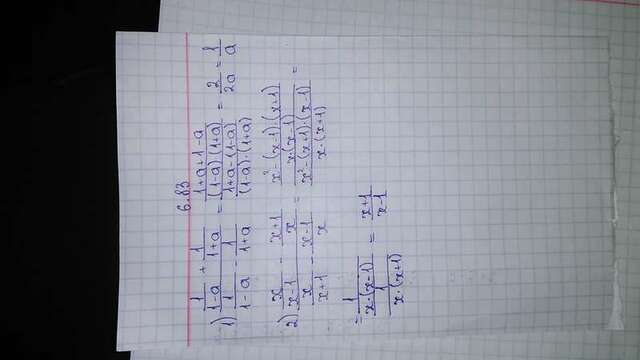 6.83
1) (1/(1-a) + 1/(1+a)) / (1/(1-a) - 1/(1+a)) = ((1+a+1-a)/((1-a)·(1+a))) / ((1+a-(1-a))/((1-a)·(1+a))) = 2/2a = 1/a
2) (x/(x-1) - (x+1)/x) / (x/(x+1) - (x-1)/x) = ((x²-(x-1)·(x+1))/(x·(x-1))) / ((x²-(x+1)·(x-1))/(x·(x+1))) =
= (1/(x·(x-1))) / (1/(x·(x+1))) = (x+1)/(x-1)